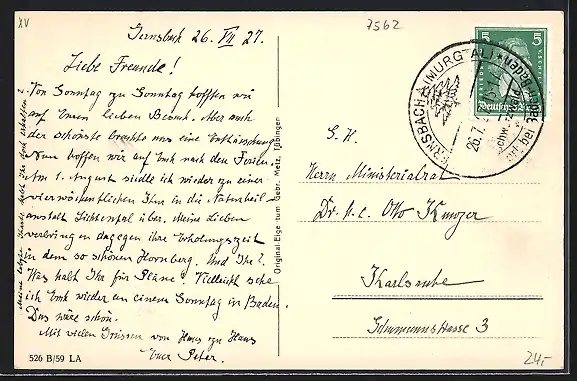 XV
7562
Gernsbach 26. VII 27.
Liebe Freunde!
Von Sonntag zu Sonntag hofften wir
auf Euren lieben Besuch. Aber auch
der schönste brachte uns eine Enttäuschung
Nun hoffen wir auf Euch nach den Ferien.
Am 1. August siedle ich wieder zu einer
vierwöchentlichen Kur in die Naturheil-
anstalt Lichtental über. Meine Lieben
verbringen dagegen ihre Erholungszeit
in dem so schönen Hornberg. Und Ihr?
Was habt Ihr für Pläne? Vielleicht sehe
ich Euch wieder an einem Sonntag in Baden.
Das wäre schön.
Mit vielen Grüssen von Haus zu Haus
Euer Peter.
Meine letzte Karte habt Ihr doch erhalten?
526 B/59 LA
Original-Eigt. zum Gebr. Metz, Tübingen
GERNSBACH (MURGTAL)
26.7.
5 5
Deutsches Reich
S. H.
Herrn Ministerialrat
Dr. h. c. Otto Kunzer
Karlsruhe
Schumannstrasse 3
24,-